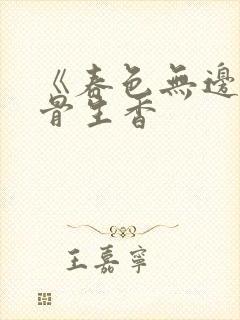 《春色無邊
骨生香
王嘉寧